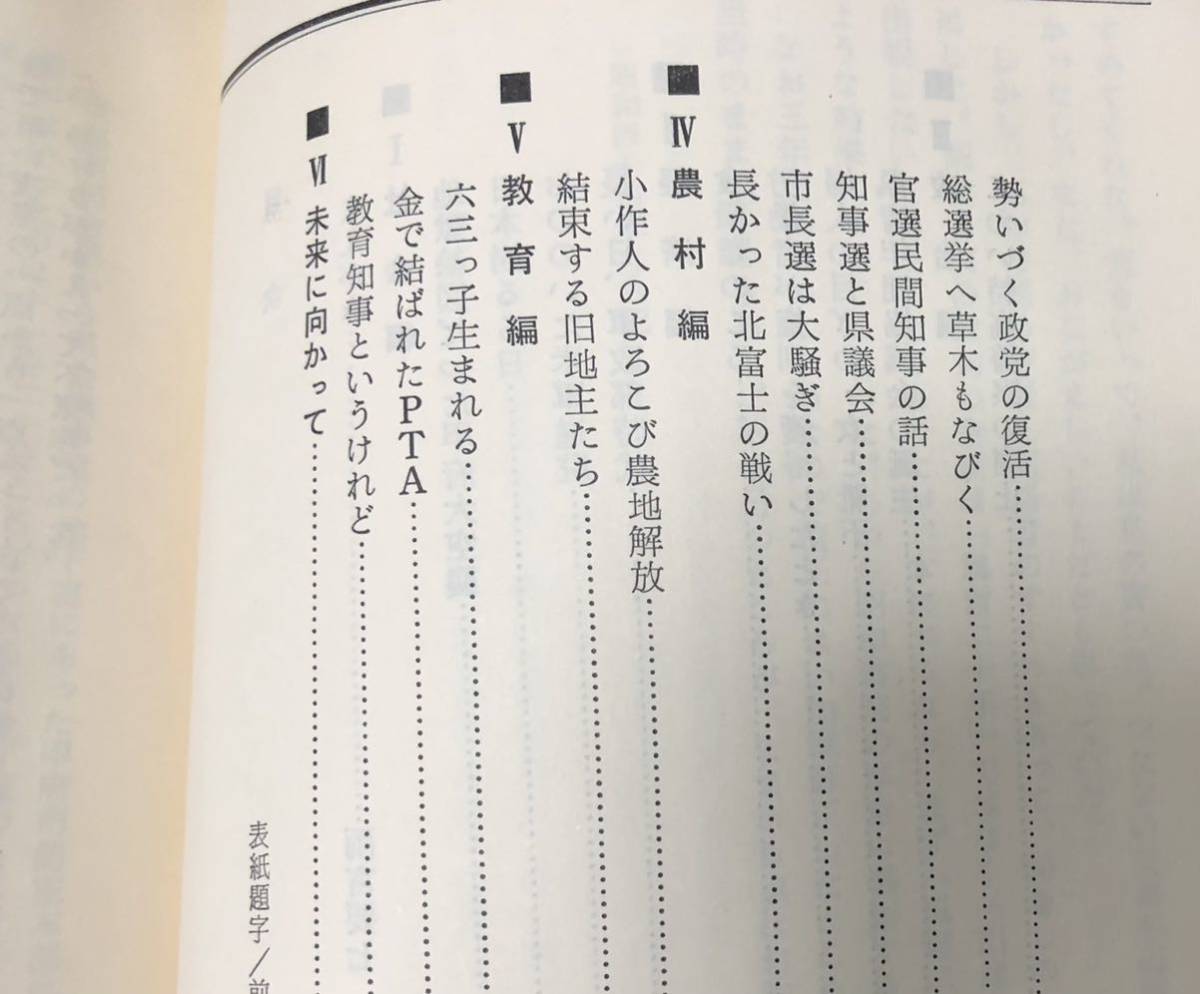 勢いづく政党の復活
総選挙へ草木もなびく
官選民間知事の話
知事選と県議会
市長選は大騒ぎ
長かった北富士の戦い
■ Ⅳ 農村編
小作人のよろこび農地解放
結束する旧地主たち
■ Ⅴ 教育編
六三っ子生まれる
金で結ばれたPTA
教育知事というけれど
■ Ⅵ 未来に向かって
表紙題字/前